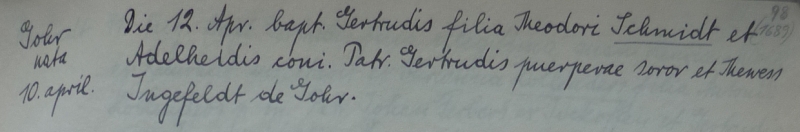 98
(1689)
Gohr
nata
10. april.
Die 12. Apr. bapt. Gertrudis filia Theodori Schmidt et
Adelheidis coni. Patr. Gertrudis puerperae soror et Thewess
Ingefeldt de Gohr.